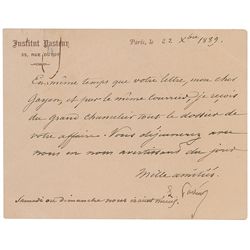 Institut Pasteur
25, RUE DUTOT
Paris, le 22 Xbre 1889.
En même temps que votre lettre, mon cher
Gayon, et par le même courrier, je reçois
du grand chancelier tout le dossier de
votre affaire. Vous déjeunerez avec
nous en nous avertissant du jour
Mille amitiés.
L. Pasteur
Samedi ou dimanche nous